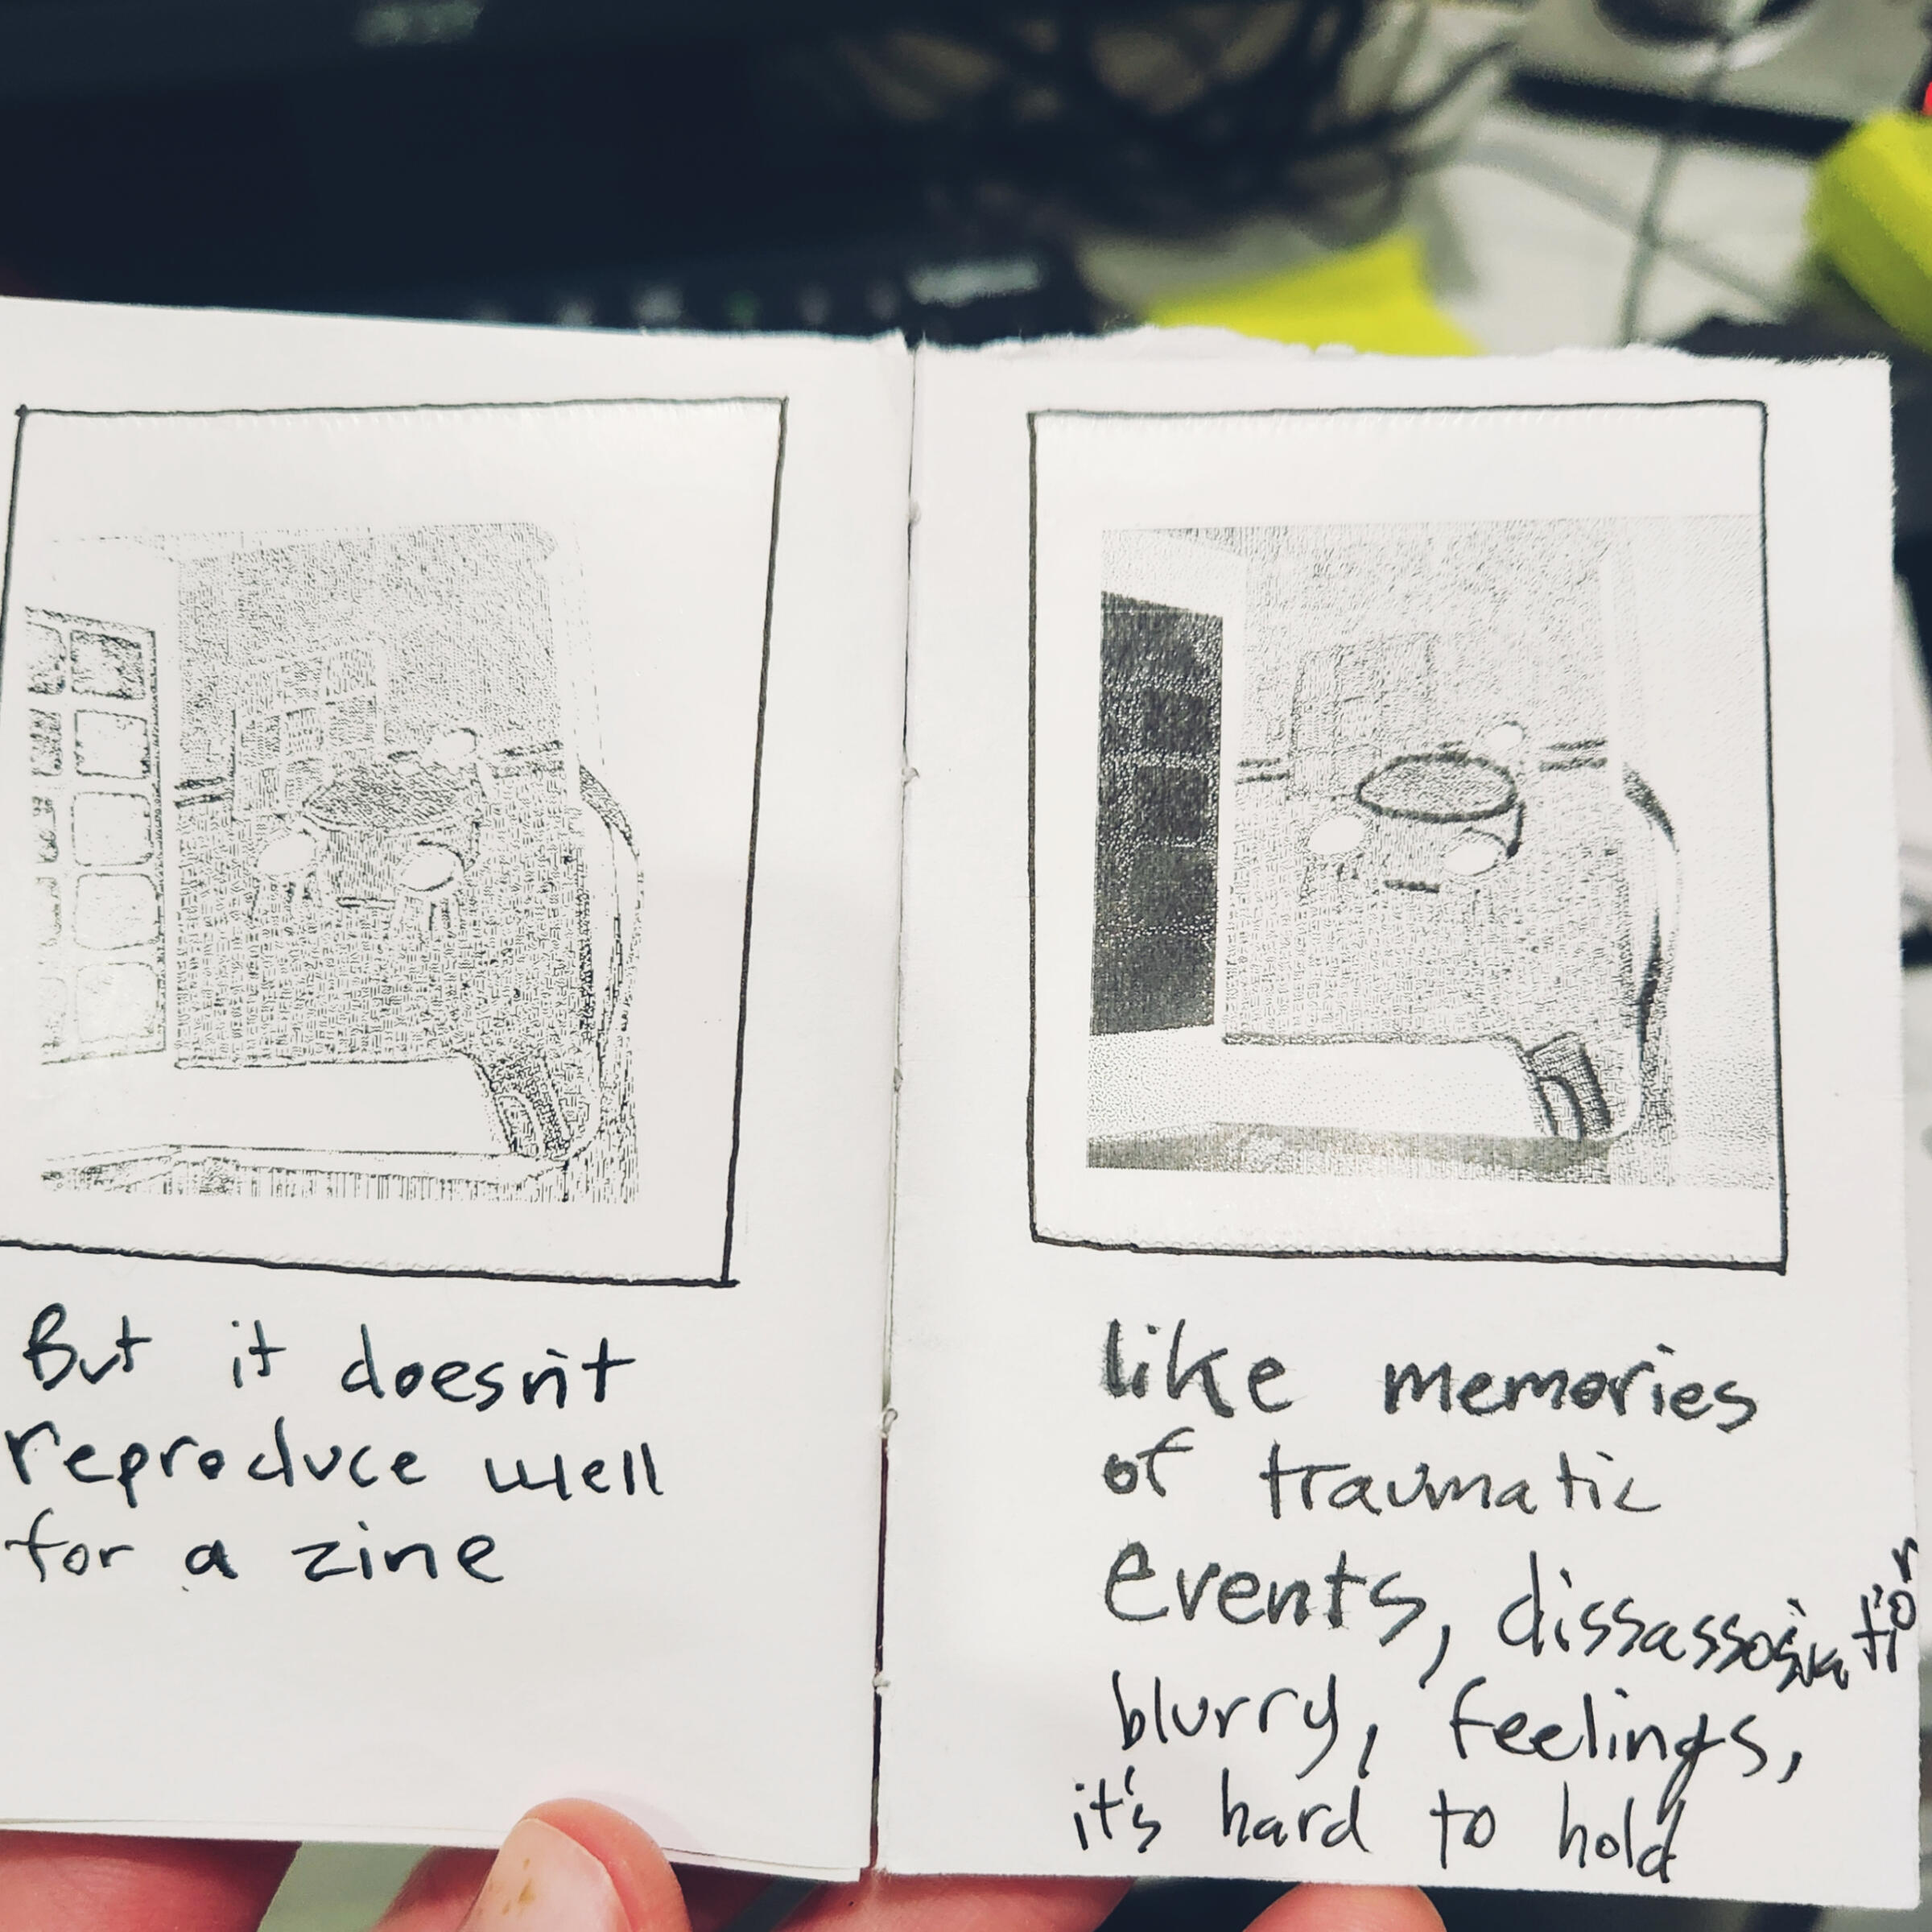 But it doesn't
reproduce well
for a zine
like memories
of traumatic
events, dissassosiation
blurry, feelings,
it's hard to hold